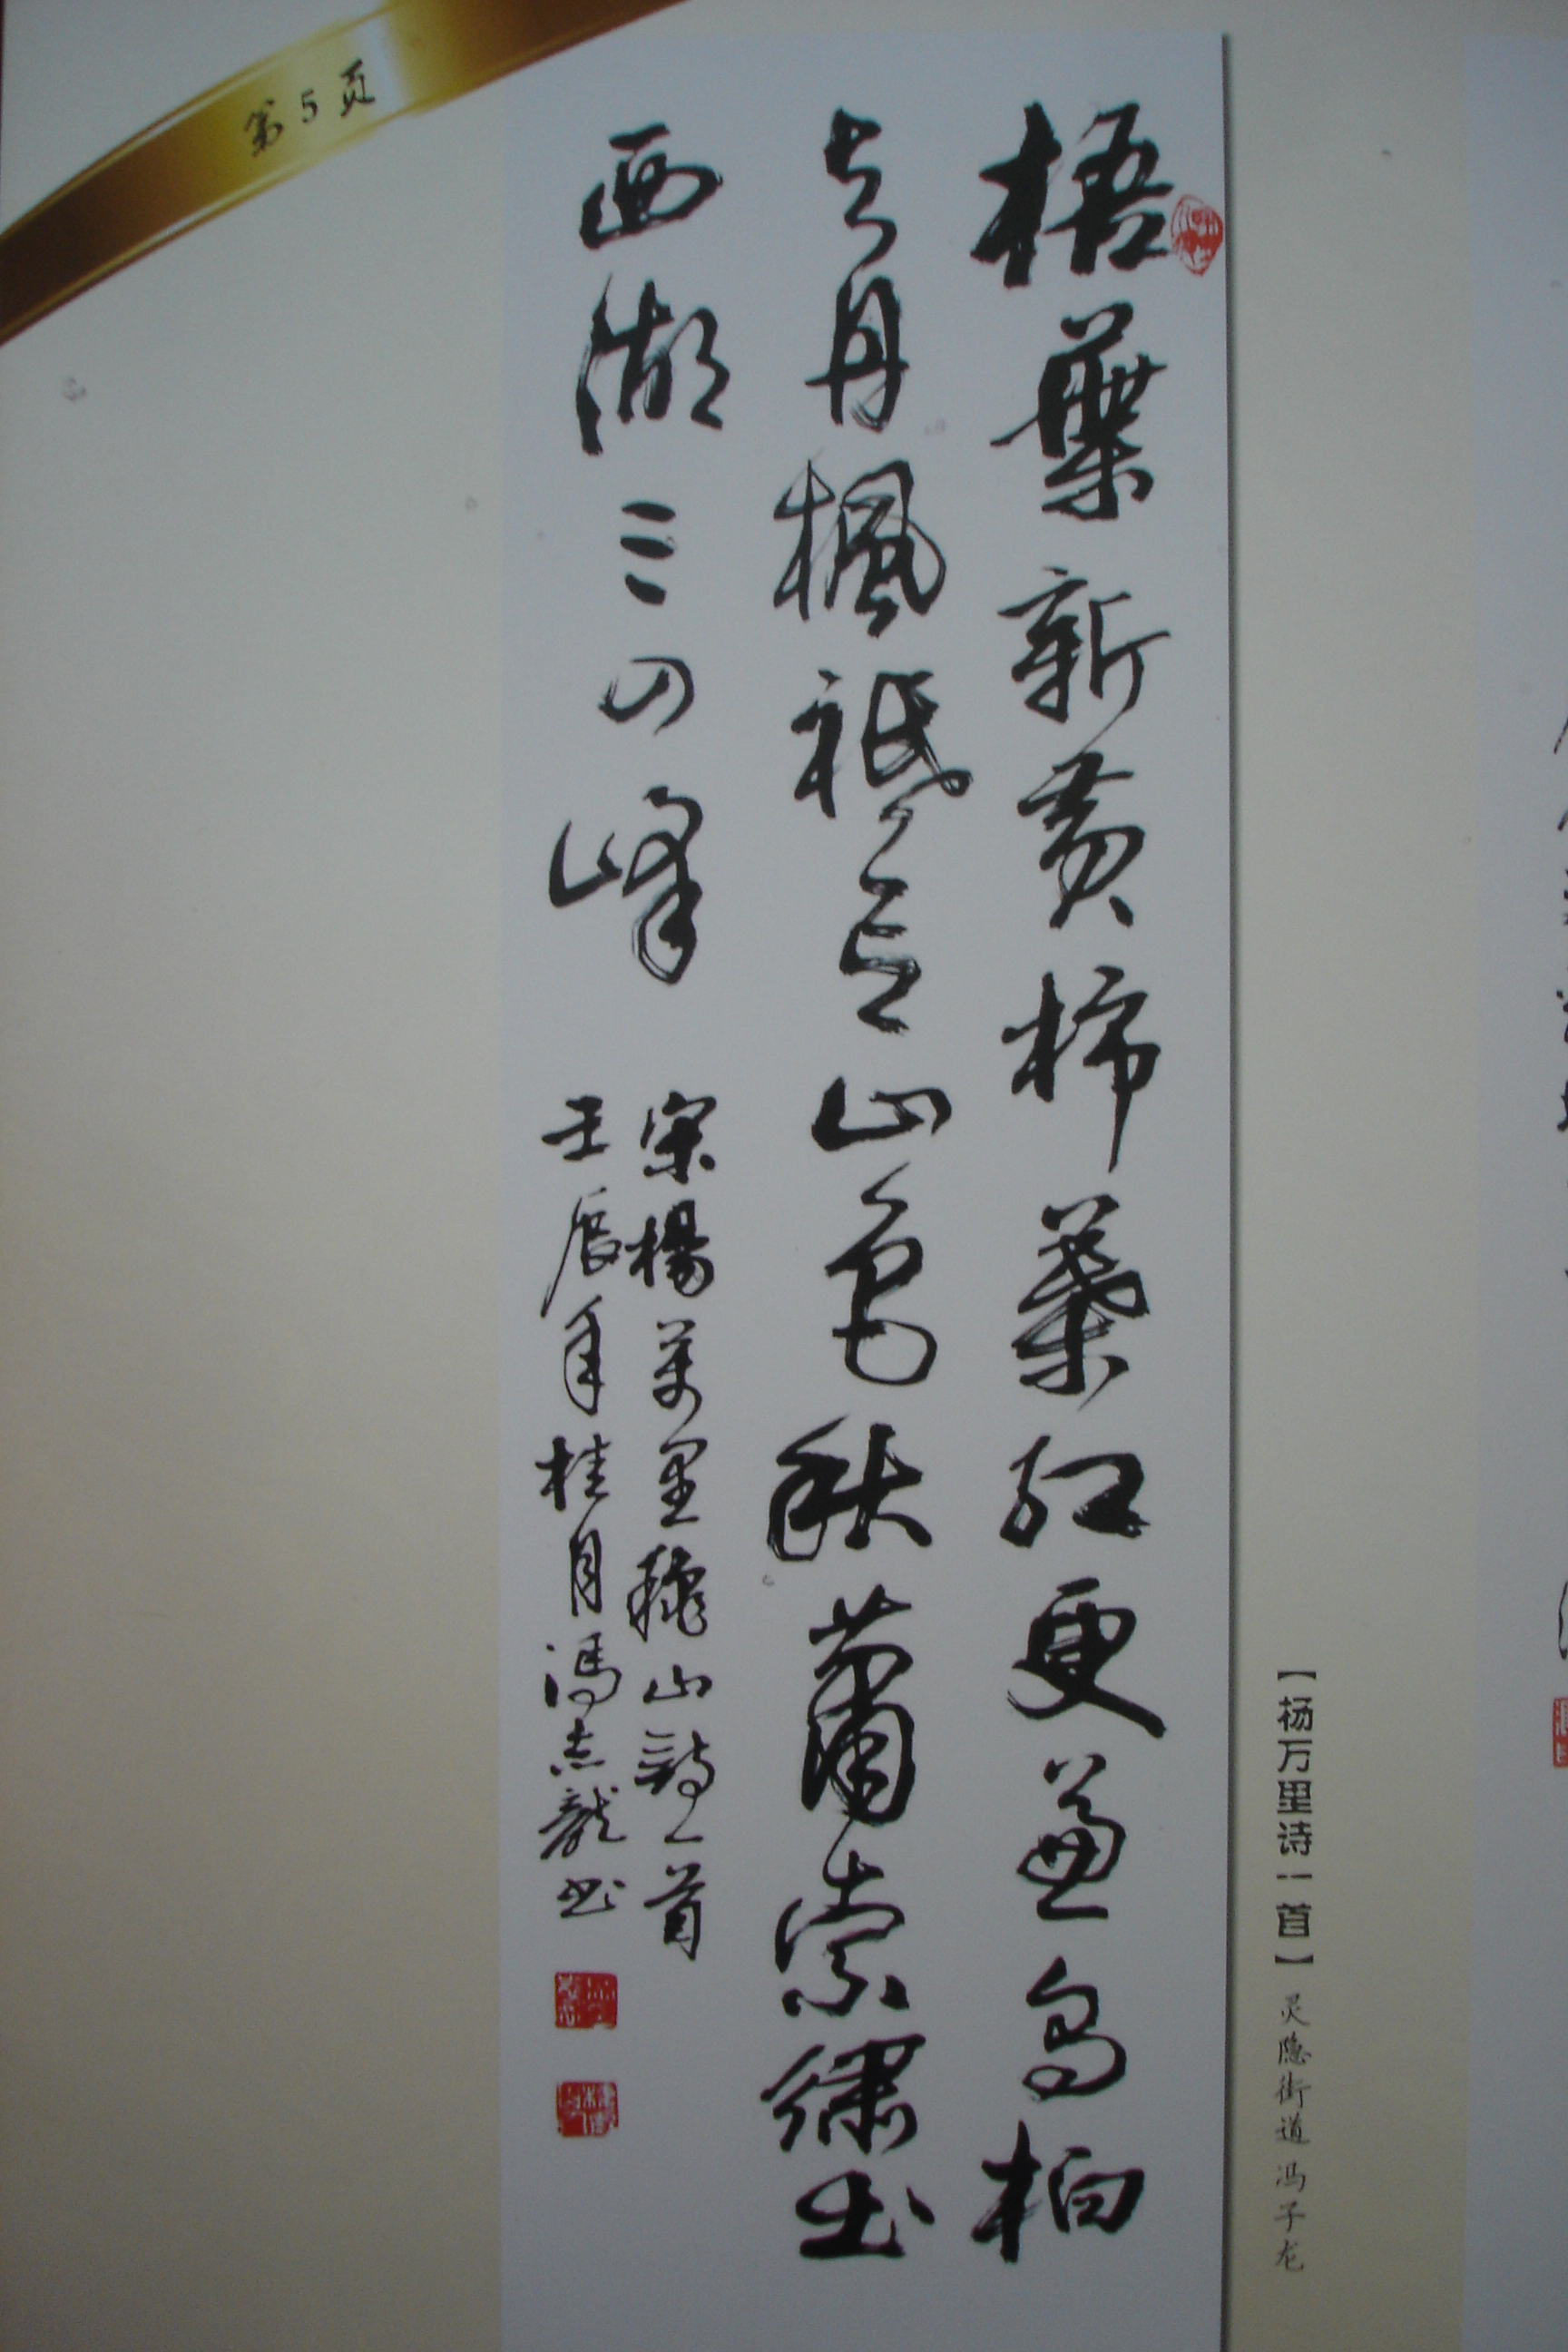 第5页
梧葉新黄柿葉红更兼烏桕
与丹楓祗言山色秋蕭索繡出
西湖三四峰
宋楊萬里穐山詩一首
壬辰年桂月馮志龍书
【杨万里诗一首】灵隐街道 冯子龙